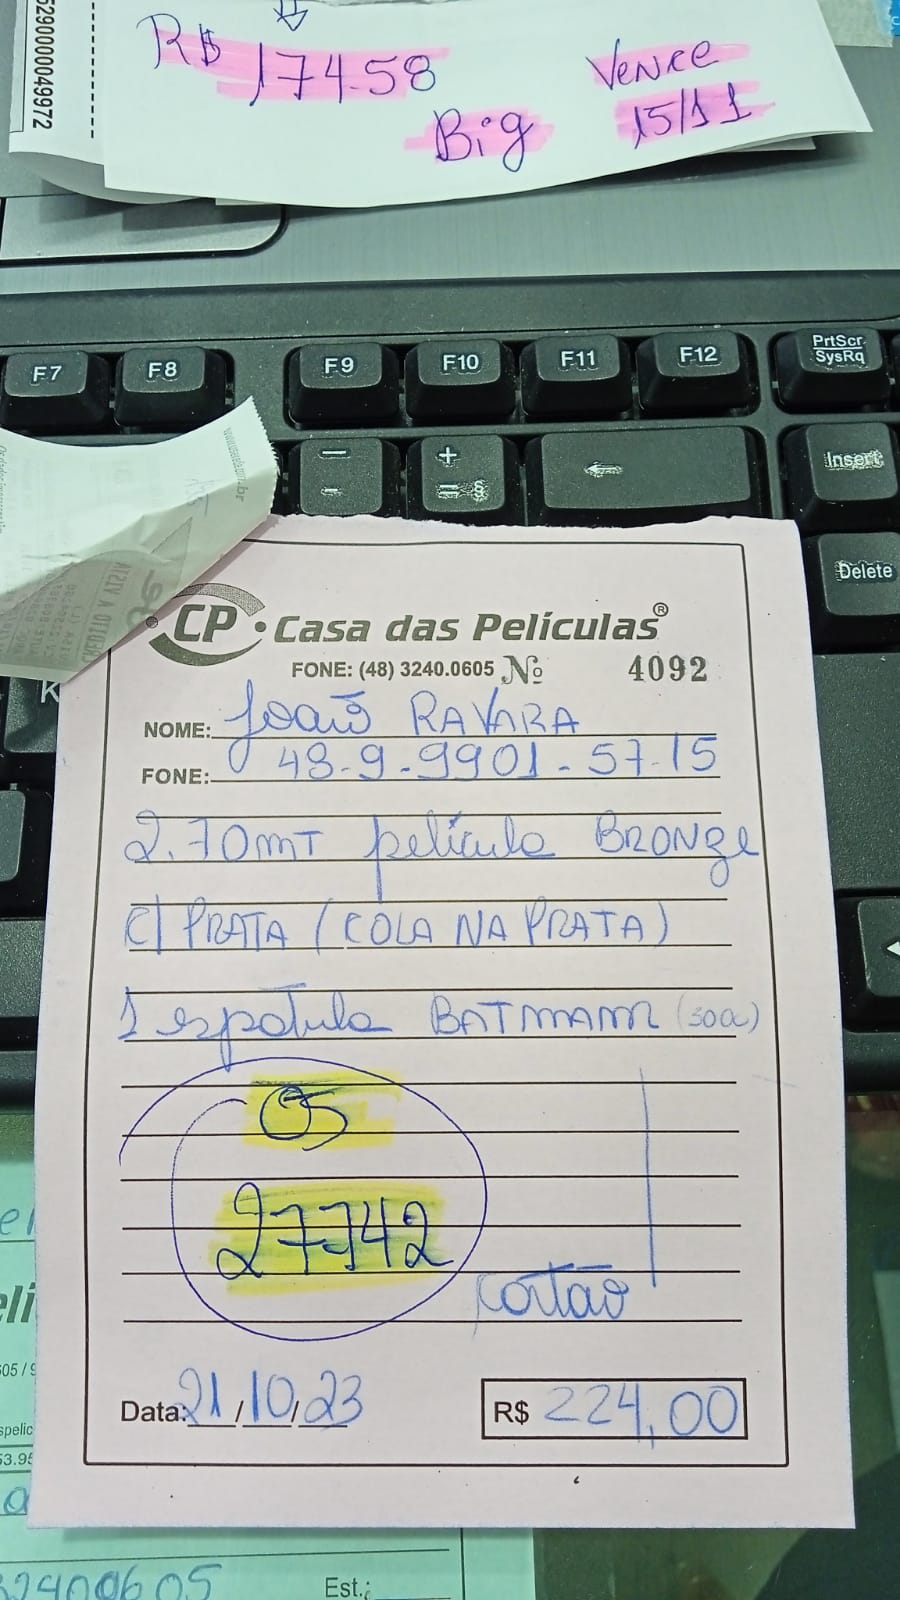 629000049972
R$ 174.58
Vence
Big
15/11
F7
F8
F9
F10
F11
F12
PrtScr
SysRq
—
-
+
= §
←
Insert
Delete
K
www.
.br
A VISTA
CP Casa das Películas®
FONE: (48) 3240.0605 Nº 4092
NOME: João RAVARA
FONE: 48-9-9901-57-15
2.70mT película BRONZE
C/ PRATA (COLA NA PRATA)
1 espátula BATMAM
05
27742
Cartão
Data: 21/10/23
R$ 224,00
eli
605 / 9
spelic
53.95
32400605
Est.: